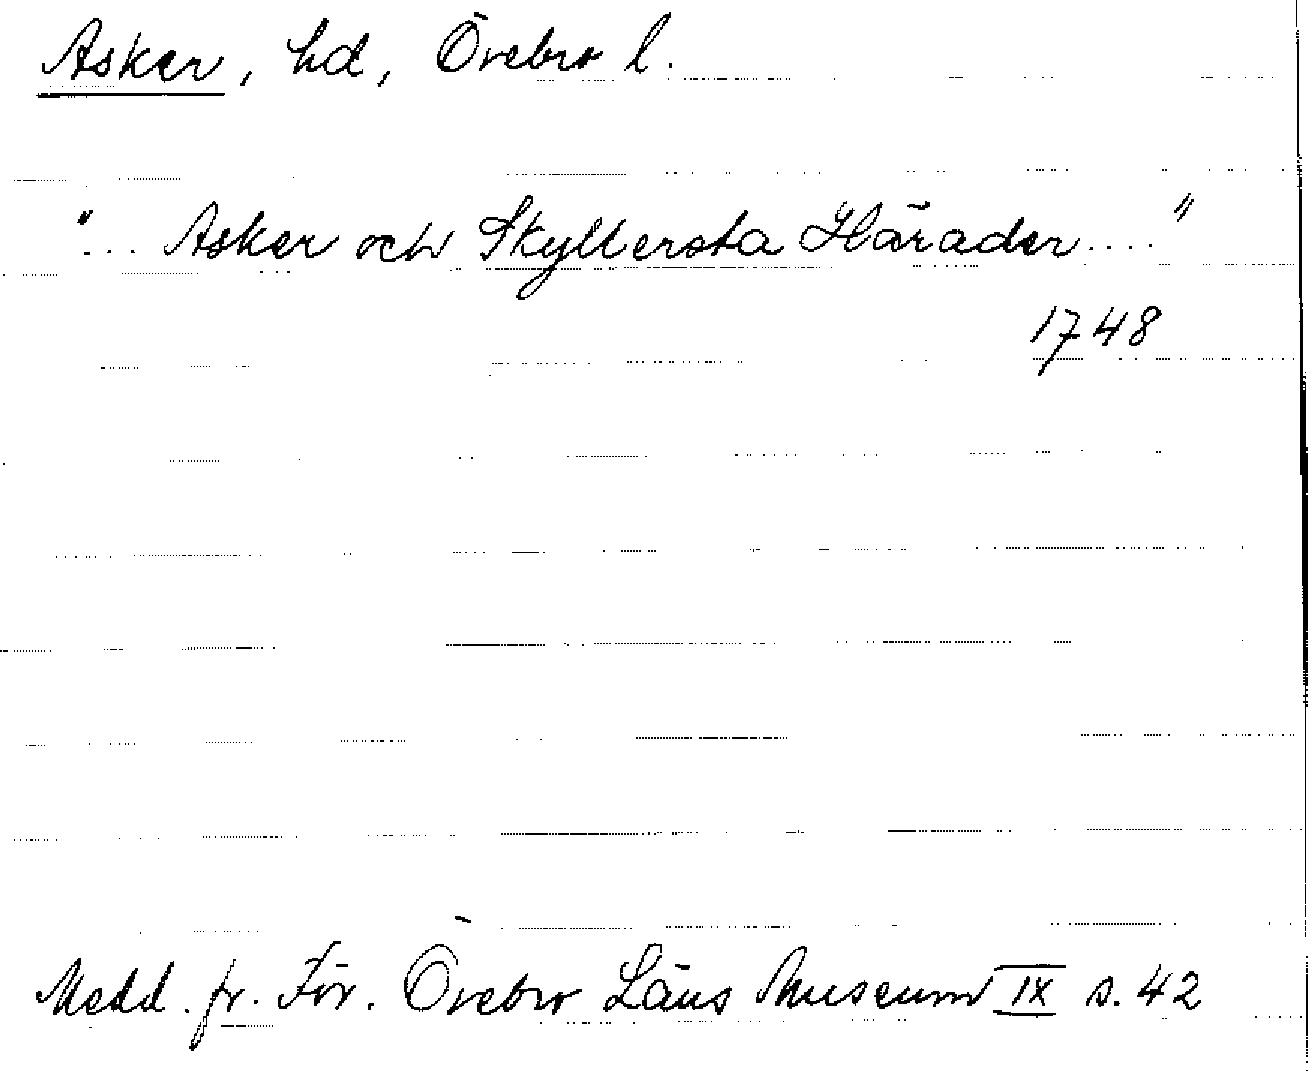 Asker, hd, Örebro l.
"... Asker och Skyllersta Härader...."
1748
Medd. fr. För. Örebro Läns Museum IX s. 42